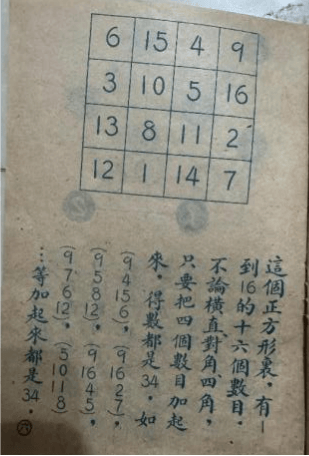 6 15 4 9
3 10 5 16
13 8 11 2
12 1 14 7
這個正方形裏，有1
到16的十六個數目。
不論橫直、對角、四角，
只要把四個數目加起
來，得數都是34，如
(9 4 15 6)，(9 16 2 7)，
(9 5 8 12)，(9 16 4 5)，
(9 7 6 12)，(5 10 11 8)
…等加起來都是34。
㈥